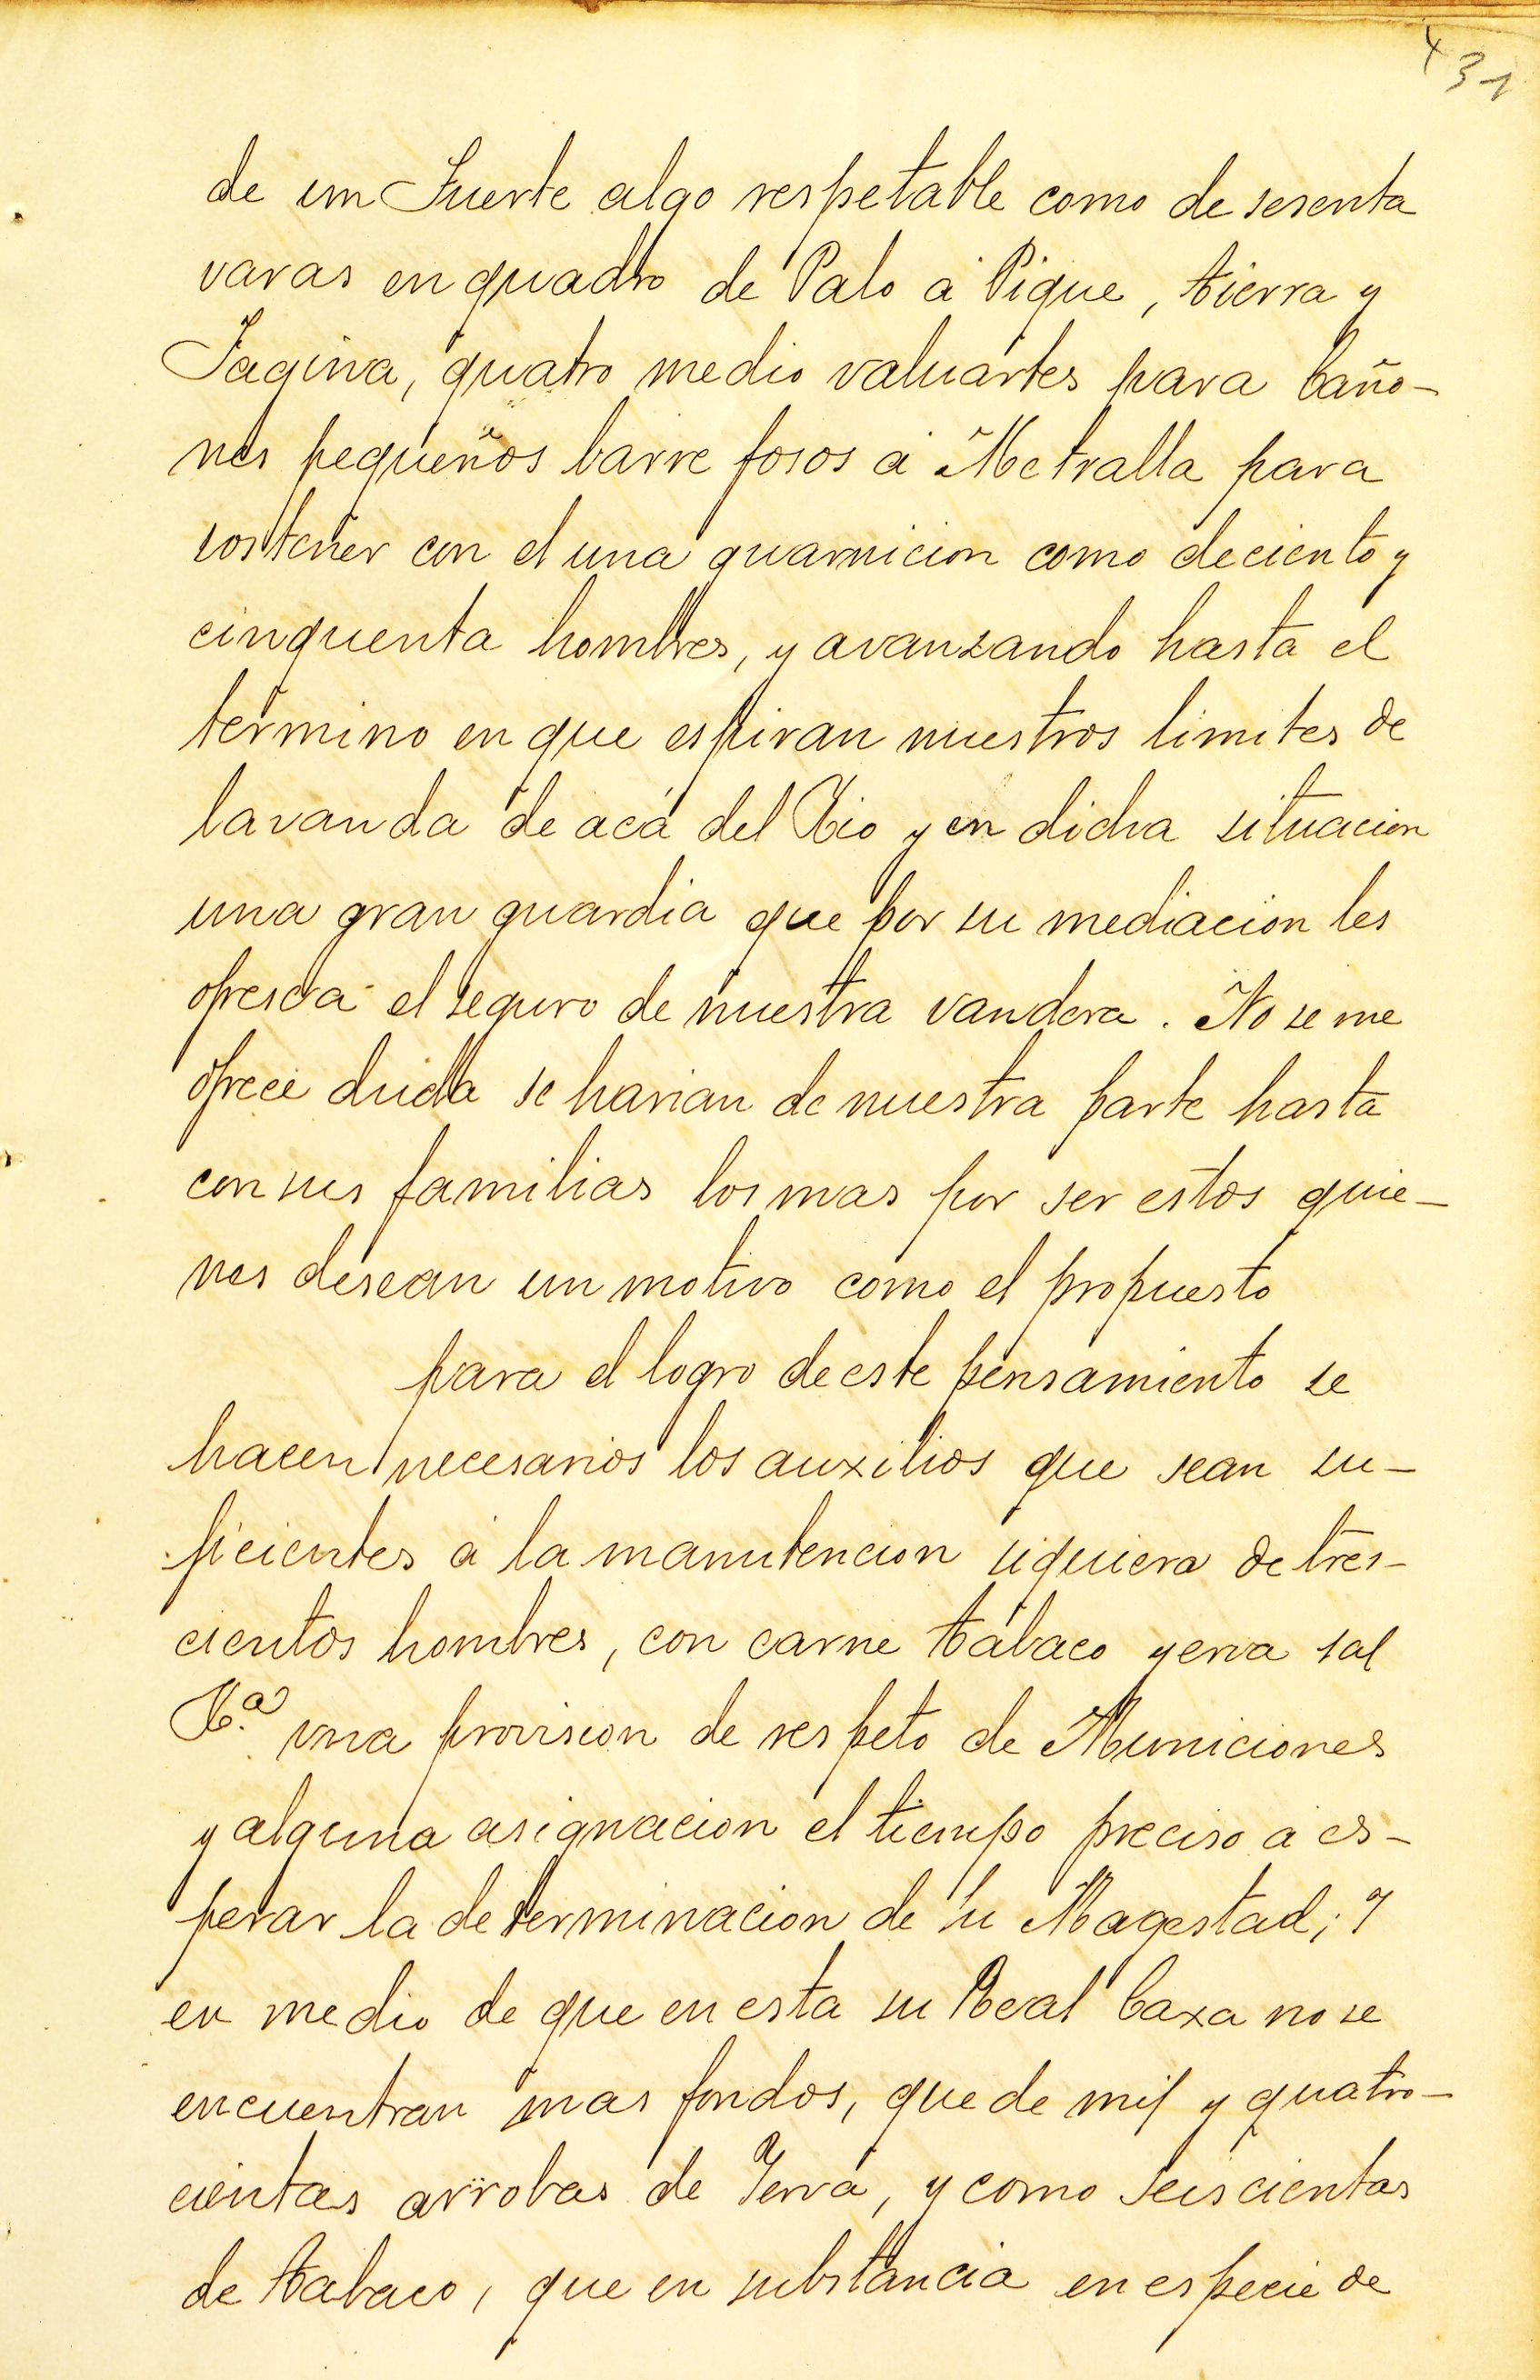 431
de un Fuerte algo respetable como de sesenta
varas en quadro de Palo á Pique, tierra y
Fagina, quatro medio valuartes para Caño-
nes pequeños barre fosos á Metralla para
sostener con el una guarnicion como de ciento y
cinquenta hombres, y avanzando hasta el
termino en que espiran nuestros limites de
la vanda de acá del Rio y en dicha situacion
una gran guardia que por su mediacion les
ofresca el seguro de nuestra vandera. No se me
ofrece duda se harian de nuestra parte hasta
con sus familias los mas por ser estos quie-
nes desean un motivo como el propuesto
para el logro de este pensamiento se
hacen necesarios los auxilios que sean su-
ficientes á la manutencion siquiera de tres-
cientos hombres, con carne tabaco yerva sal
&.ª una provision de respeto de Municiones
y alguna asignacion el tiempo preciso á es-
perar la determinacion de su Magestad; Y
en medio de que en esta su Real Caxa no se
encuentran mas fondos, que de mil y quatro-
cientas arrobas de Yerva, y como seiscientas
de tabaco, que en substancia en especie de